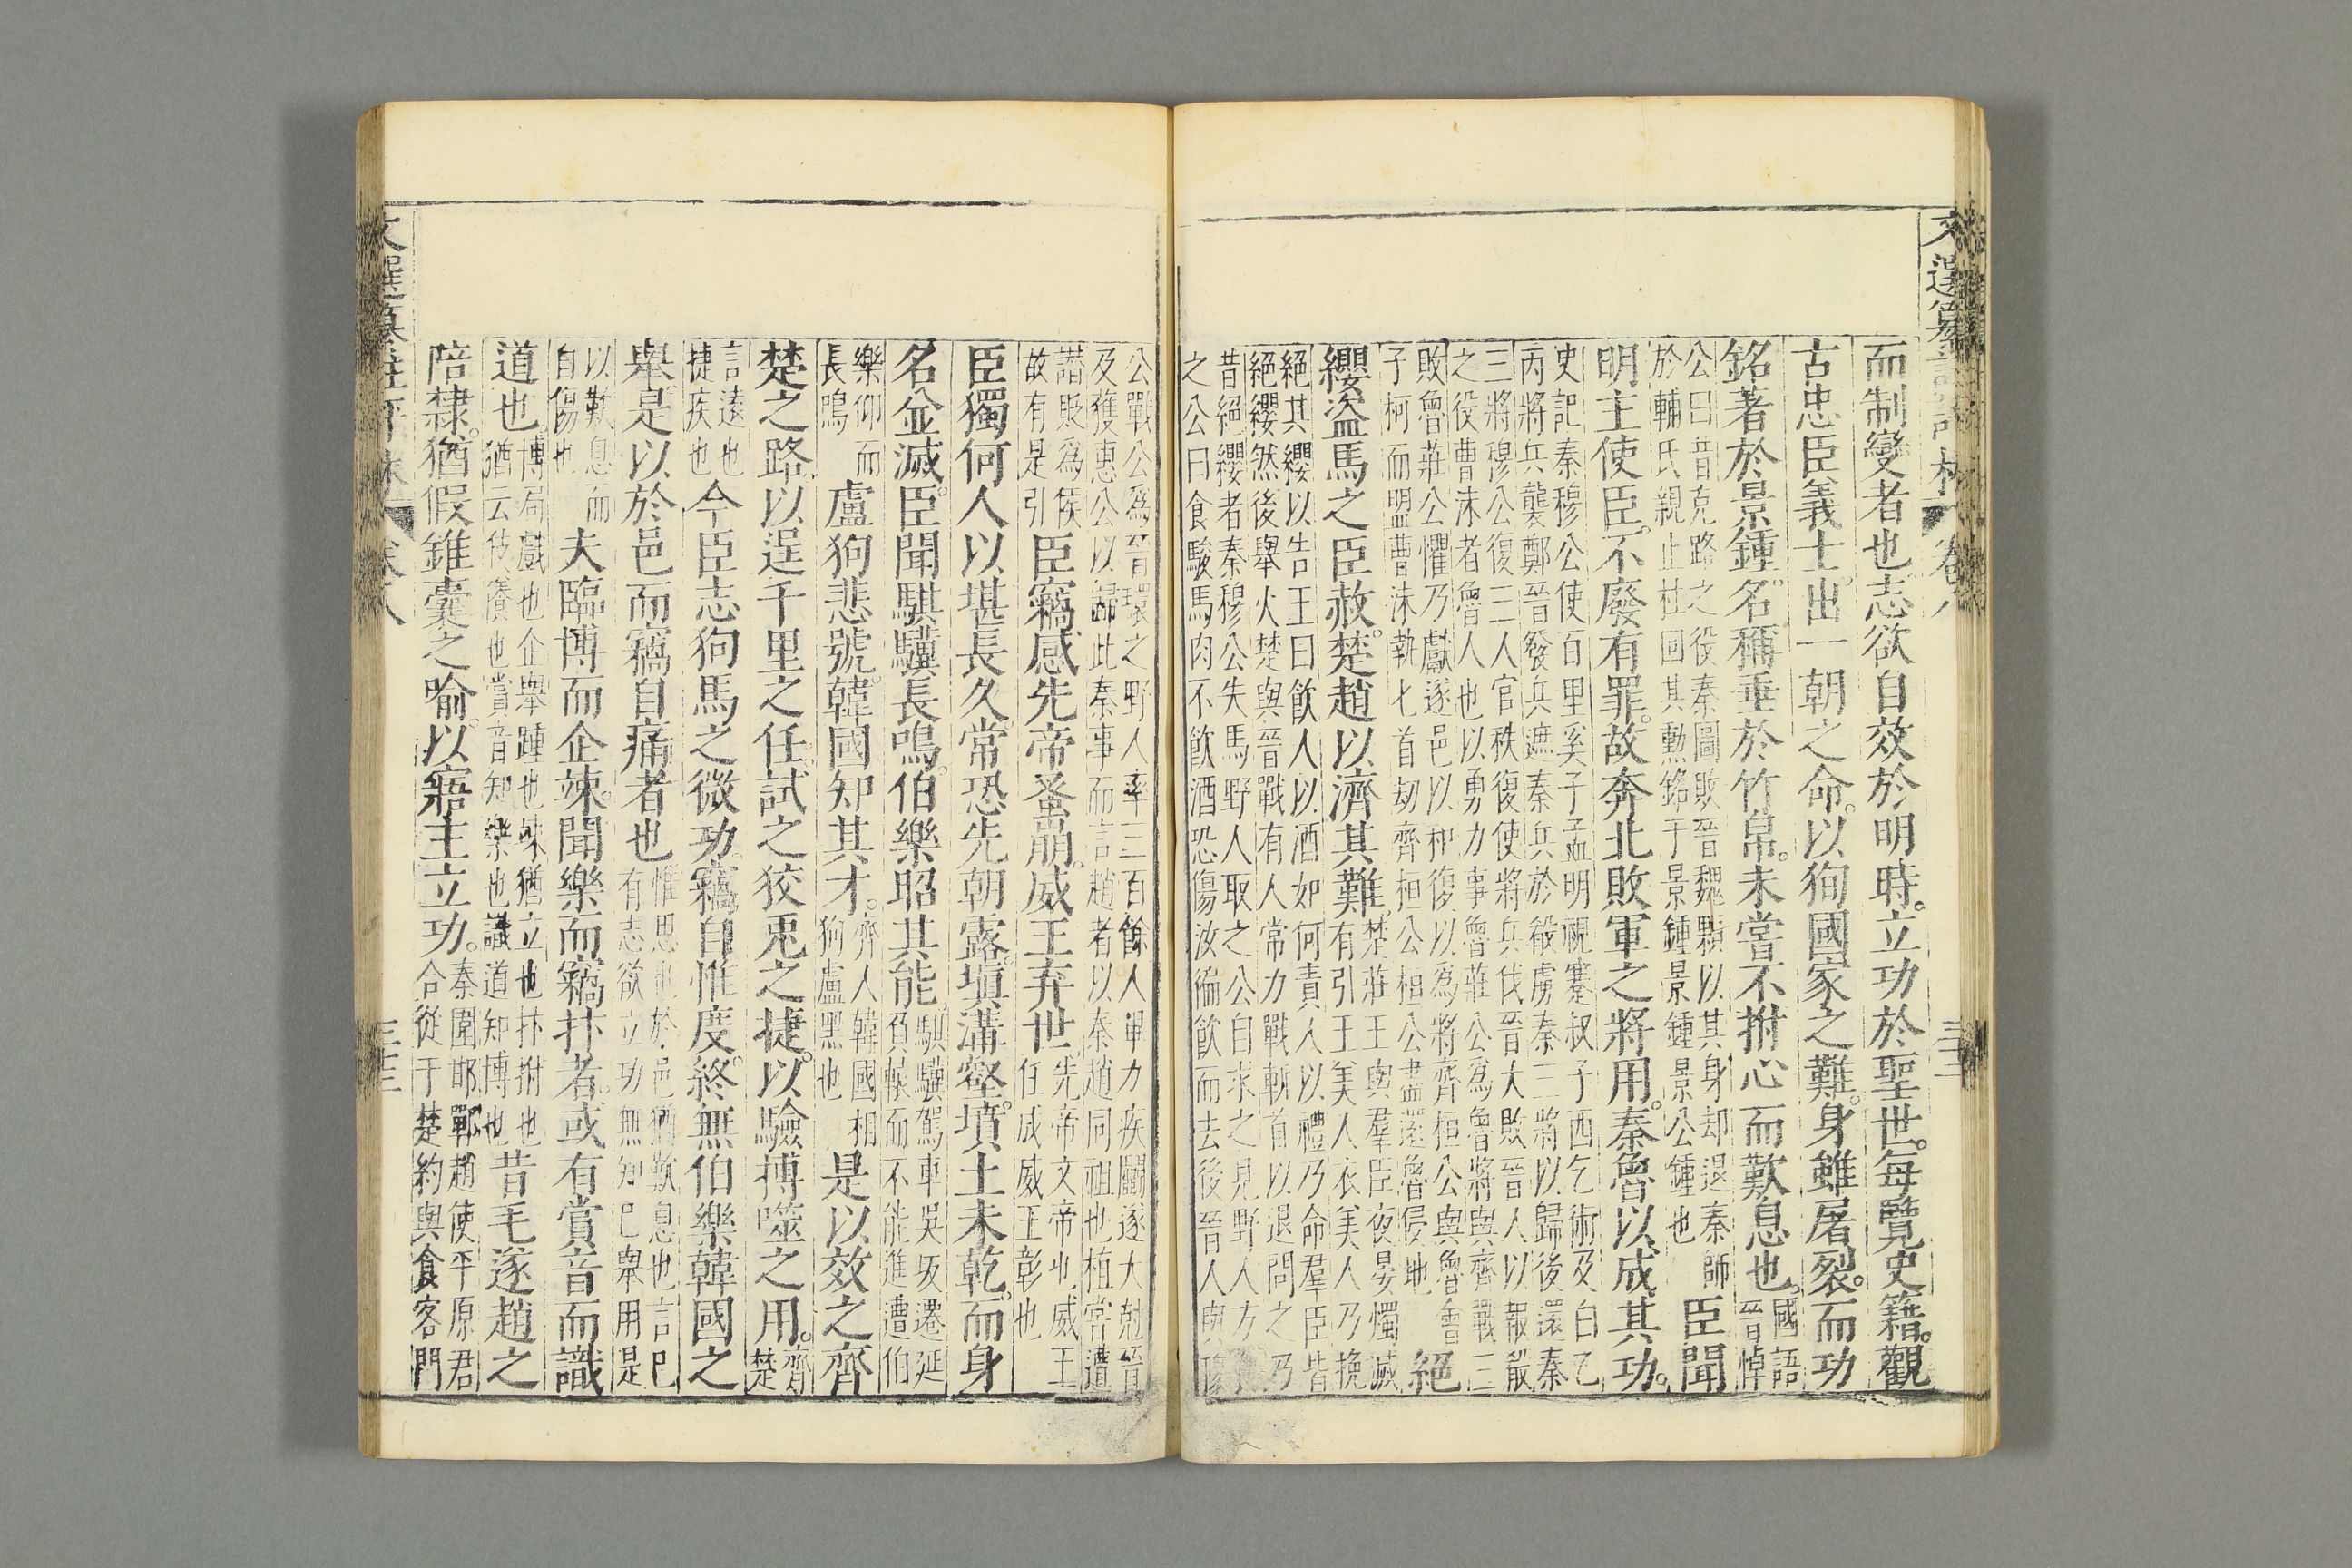 文選纂註評林 卷八 三十二
而制變者也志欲自效於明時。立功於聖世。每覽史籍。觀
古忠臣義士。出一朝之命。以徇國家之難。身雖屠裂。而功
銘著於景鍾。名稱垂於竹帛。未嘗不拊心而歎息也。國語
晉悼
公曰昔克路之役秦圖敗晉魏顆以其身却退秦師
於輔氏親止杜回其勳銘于景鍾景鍾景公鍾也
臣聞
明主使臣。不廢有罪。故奔北敗軍之將用。秦魯以成其功。
史記秦穆公使百里奚子孟明視蹇叔子西乞術及白乙
丙將兵襲鄭晉發兵遮秦兵於殽虜秦三將以歸後還秦
三將穆公復三人官秩復使將兵伐晉大敗晉人以報殽
之役曹沫者魯人也以勇力事魯莊公爲魯將與齊戰三
敗魯莊公懼乃獻遂邑以和復以爲將齊桓公與魯會
于柯而盟曹沫執匕首劫齊桓公桓公盡還魯侵地
絕
纓盜馬之臣赦。楚趙以濟其難。
楚莊王與羣臣夜晏燭滅
有引王美人衣美人乃挽
絕其纓以告王曰飲人以酒如何責人以禮乃命羣臣皆
絕纓然後舉火楚與晉戰有人常力戰斬首以退問之乃
昔絕纓者秦穆公失馬野人取之公自求之見野人方
之公曰食駿馬肉不飲酒恐傷汝徧飲而去後晉人與穆
公戰公爲晉環之野人率三百餘人單力疾鬭遂大尅晉
及獲惠公以歸此秦事而言趙者以秦趙同祖也植常遭
譖貶爲侯
故有是引
臣竊感先帝蚤崩。威王弃世。
先帝文帝也威王
任成威王彰也
臣獨何人以堪長久。常恐先朝露。填溝壑。墳土未乾。而身
名並滅。臣聞騏驥長鳴。伯樂昭其能。
騏驥駕車吳坂遷延
負轅而不能進遭伯
樂仰而
長鳴
盧狗悲號。韓國知其才。
齊人韓國相
狗盧黑也
是以效之齊
楚之路。以逞千里之任。試之狡兎之捷。以驗搏噬之用。
齊
楚
言遠也
捷疾也
今臣志狗馬之微功。竊自惟度。終無伯樂韓國之
舉。是以於邑而竊自痛者也
惟思也於邑猶歎息也言己
有志欲立功無知己舉用是
以歎息而
自傷也
夫臨博而企竦。聞樂而竊抃者。或有賞音而識
道也
博局戲也企舉踵也竦猶立也抃拊也
猶云伎癢也賞音知樂也識道知博也
昔毛遂趙之
陪隸。猶假錐囊之喻。以寤主立功。
秦圍邯鄲趙使平原君
合從于楚約與食客門
文選纂註評林 卷八 三十三